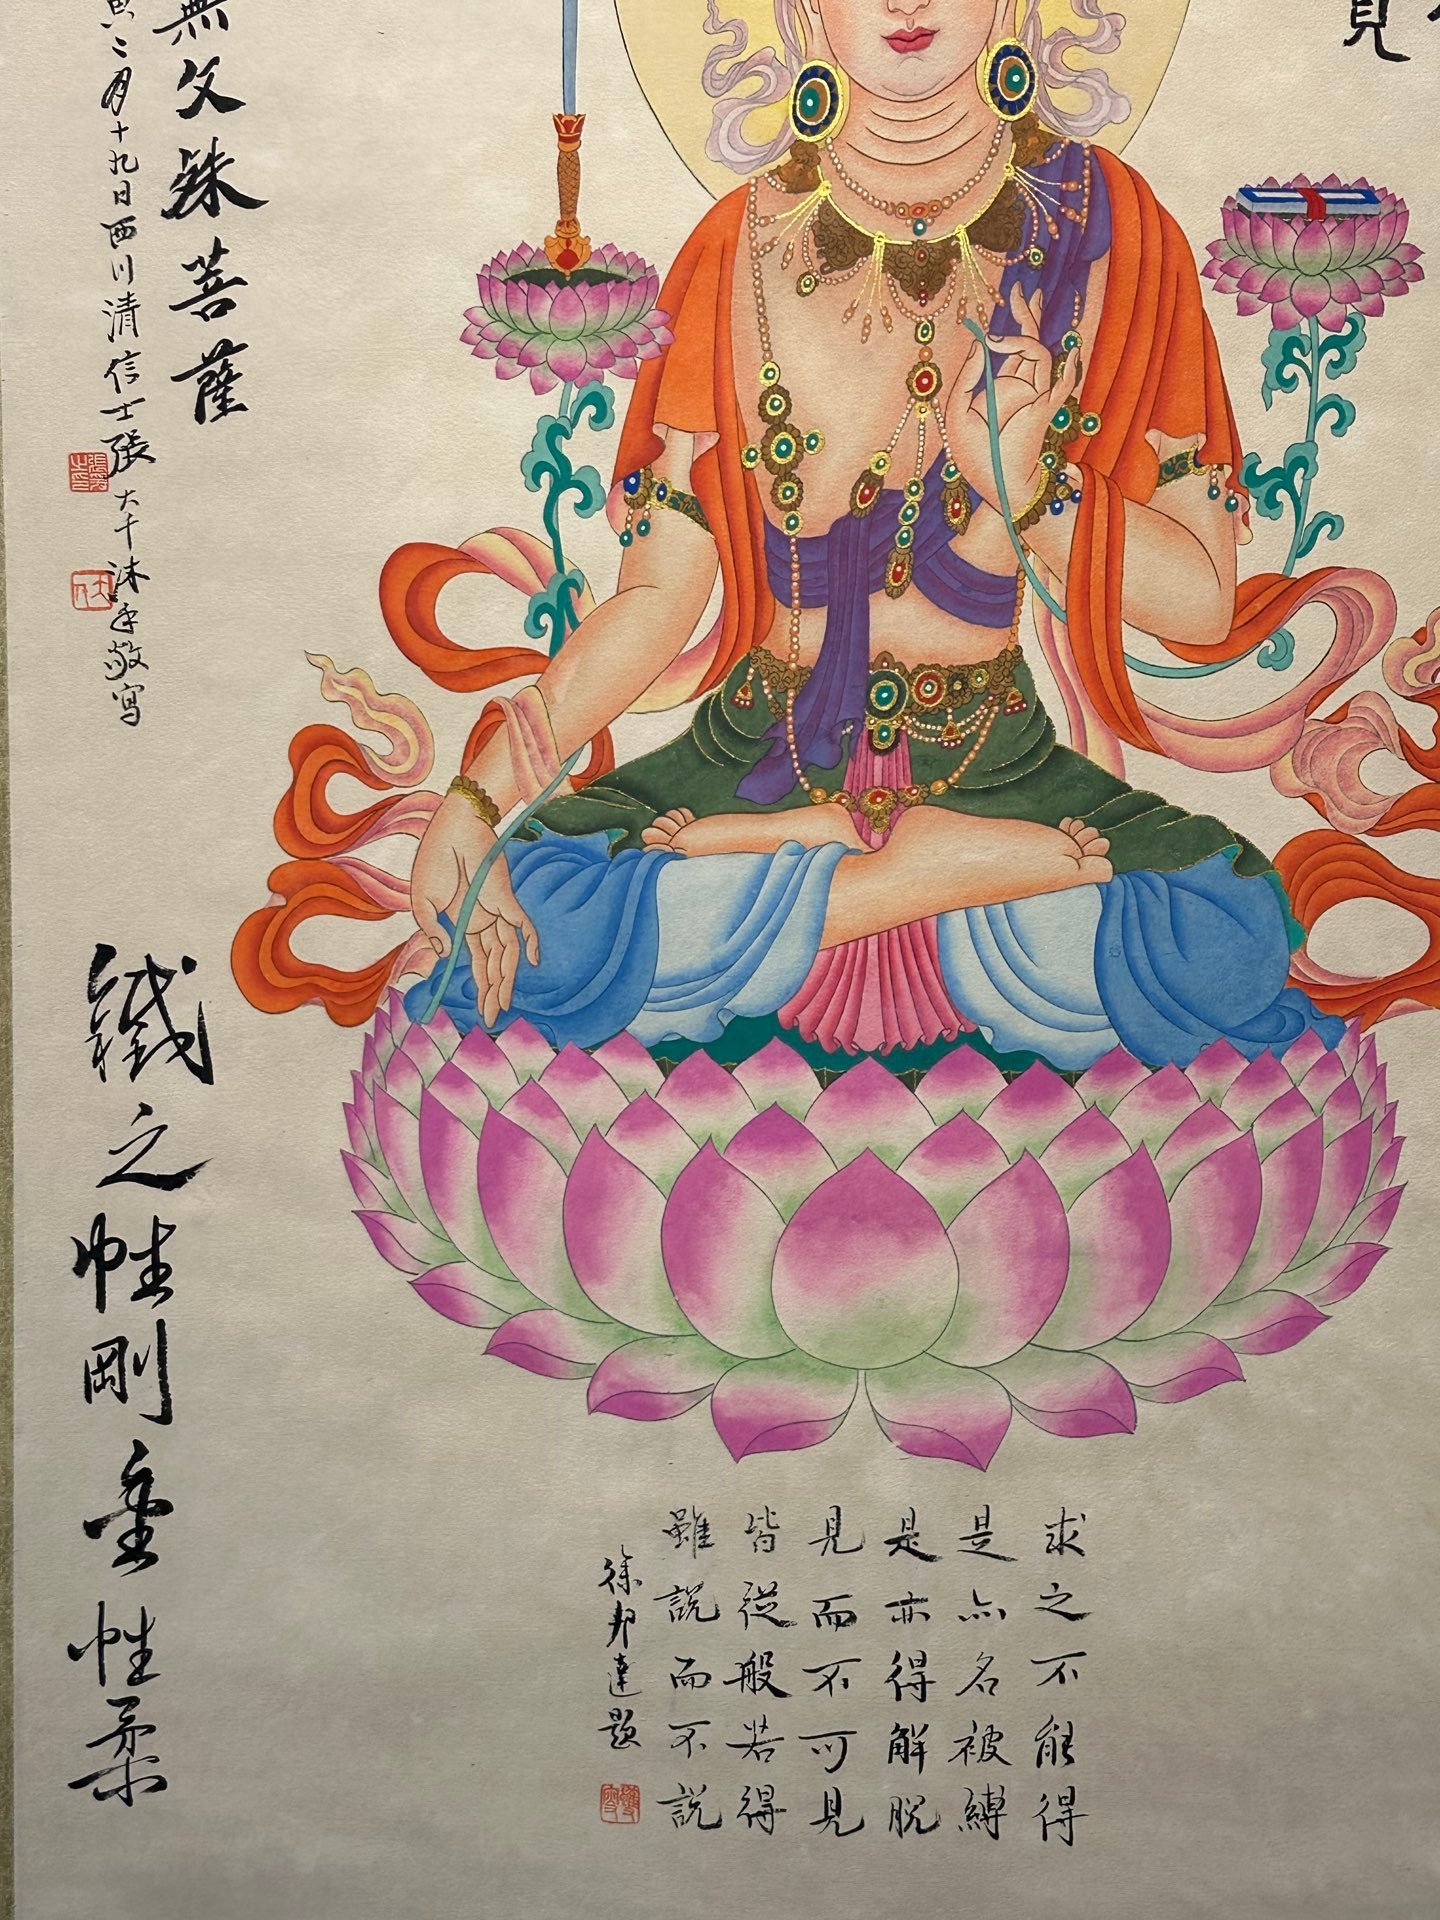 見
無文殊菩薩
寅二月十九日西川清信士張大千沐手敬寫
鐵之性剛金性柔
求之不能得
是亦名被縛
是亦得解脫
見而不可見
皆從般若得
雖說而不說
徐邦達題